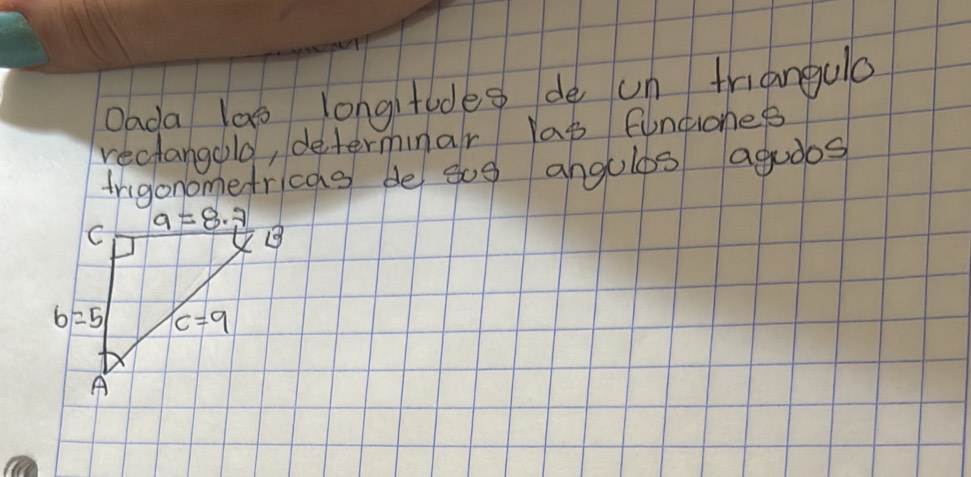 Dada las longitudes de un triangulo
rectangulo, determinar las funciones
trigonometricas de sus angulos agudos
a=8.7
C B
b=5 c=9
A